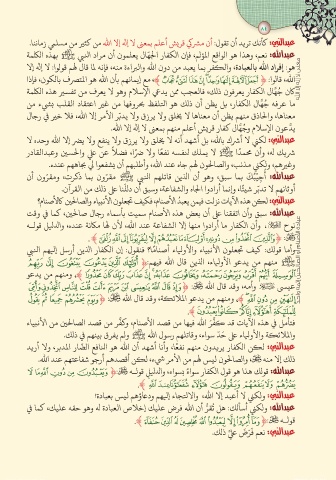 عبدالنبي: كأنك تريد أن تقول: أن مشركي قريش أعلم بمعنى لا إله إلا الله من كثير من مسلمي زماننا.
عبدالله: نعم، وهذا هو الواقع المؤلم، فإن الكفار الجهال يعلمون أن مراد النبي ﷺ بهذه الكلمة
هو: إفراد الله بالعبادة، والكفر بما يعبد من دون الله والبراءة منه، فإنه لما قال لهم قولوا: لا إله إلا
الله، قالوا: ﴿أجعل الآلهة إلها واحدا إن هذا لشيء عجاب﴾ مع إيمانهم بأن الله هو المتصرف بالكون، فإذا
كان جهال الكفار يعرفون ذلك؛ فالعجب ممن يدعي الإسلام وهو لا يعرف من تفسير هذه الكلمة
ما عرفه جهال الكفار، بل يظن أن ذلك هو التلفظ بحروفها من غير اعتقاد القلب بشيء من
معناها، والحاذق منهم يظن أن معناها لا يخلق ولا يرزق ولا يدبر الأمر إلا الله، فلا خير في رجال
يدعون الإسلام وجهال كفار قريش أعلم منهم بمعنى لا إله إلا الله.
عبدالنبي: لكني لا أشرك بالله، بل أشهد أنه لا يخلق ولا يرزق ولا ينفع ولا يضر إلا الله وحده لا
شريك له، وأن محمدا ﷺ لا يملك لنفسه نفعا ولا ضرا، فضلا عن علي والحسين وعبدالقادر
وغيرهم، ولكني مذنب، والصالحون لهم جاه عند الله، وأطلبهم أن يشفعوا لي بجاههم عنده.
عبدالله: أجيبك بما سبق، وهو أن الذين قاتلهم النبي ﷺ مقرون بما ذكرت، ومقرون أن
أوثانهم لا تدبر شيئا، وإنما أرادوا الجاه والشفاعة، وسبق أن دللنا على ذلك من القرآن.
عبدالنبي: لكن هذه الآيات نزلت فيمن يعبد الأصنام فكيف تجعلون الأنبياء والصالحين كالأصنام؟
عبدالله: سبق وأن اتفقنا على أن بعض هذه الأصنام سميت بأسماء رجال صالحين، كما في وقت
نوح، وأن الكفار ما أرادوا منها إلا الشفاعة عند الله، لأن لها مكانة عنده، والدليل قوله
تعالى: ﴿والذين اتخذوا من دونه أولياء ما نعبدهم إلا ليقربونا إلى الله زلفى﴾.
وأما قولك كيف تجعلون الأنبياء والأولياء أصناما؟ فنقول: إن الكفار الذين أرسل إليهم النبي
ﷺ منهم من يدعو الأولياء، الذين قال الله فيهم: ﴿أولئك الذين يدعون يبتغون إلى ربهم
الوسيلة أيهم أقرب ويرجون رحمته ويخافون عذابه إن عذاب ربك كان محذورا﴾، ومنهم من يدعو
عيسى وأمه، وقد قال الله: ﴿وإذ قال الله يا عيسى ابن مريم أأنت قلت للناس اتخذوني وأمي
إلهين من دون الله﴾، ومنهم من يدعو الملائكة، وقد قال الله: ﴿ويوم يحشرهم جميعا ثم يقول
للملائكة أهؤلاء إياكم كانوا يعبدون﴾.
فتأمل في هذه الآيات قد كفر الله فيها من قصد الأصنام، وكفر من قصد الصالحين من الأنبياء
والملائكة والأولياء على حد سواء، وقاتلهم رسول الله ﷺ ولم يفرق بينهم في ذلك.
عبدالنبي: لكن الكفار يريدون منهم نفعه، وأنا أشهد أن الله هو النافع الضار المدبر، ولا أريد
ذلك إلا منه، والصالحون ليس لهم من الأمر شيء، لكن أقصدهم أرجو شفاعتهم عند الله.
عبدالله: قولك هذا هو قول الكفار سواء بسواء، والدليل قوله: ﴿ويعبدون من دون الله ما لا
يضرهم ولا ينفعهم ويقولون هؤلاء شفعاؤنا عند الله﴾.
عبدالنبي: ولكني لا أعبد إلا الله، والالتجاء إليهم ودعاؤهم ليس بعبادة!
عبدالله: ولكني أسألك: هل تقر أن الله فرض عليك إخلاص العبادة له وهو حقه عليك، كما في
قوله: ﴿وما أمروا إلا ليعبدوا الله مخلصين له الدين حنفاء﴾.
عبدالنبي: نعم فرض علي ذلك.